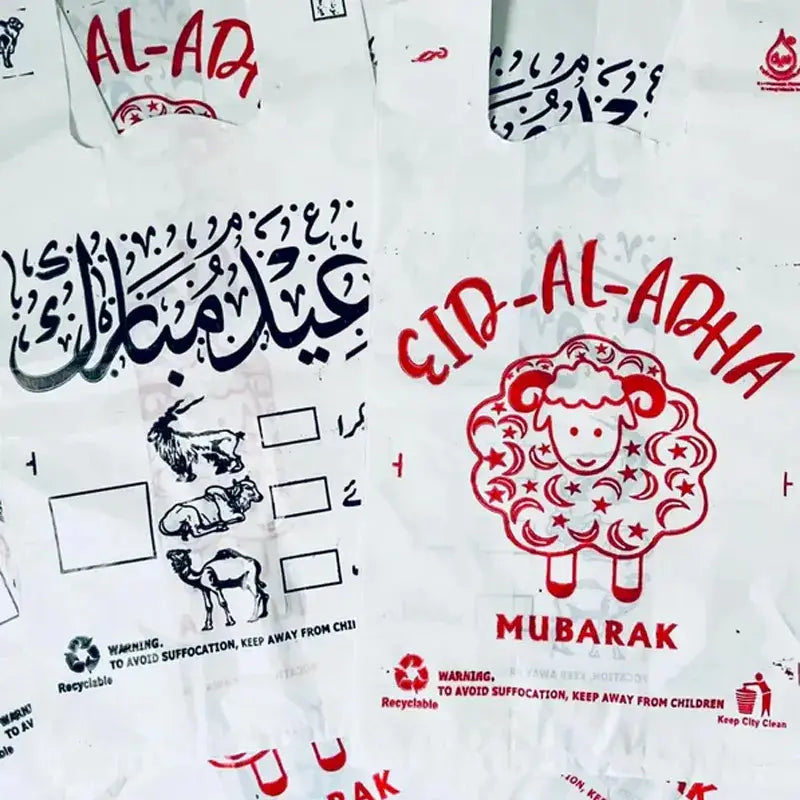 AL-ADH
عید مبارک
کرا
ئے
WARNING.
TO AVOID SUFFOCATION, KEEP AWAY FROM CHIL
Recyclable
WARN
TO AV
ble
EID-AL-ADHA
MUBARAK
WARNING.
TO AVOID SUFFOCATION, KEEP AWAY FROM CHILDREN
Recyclable
Keep City Clean
BARAK